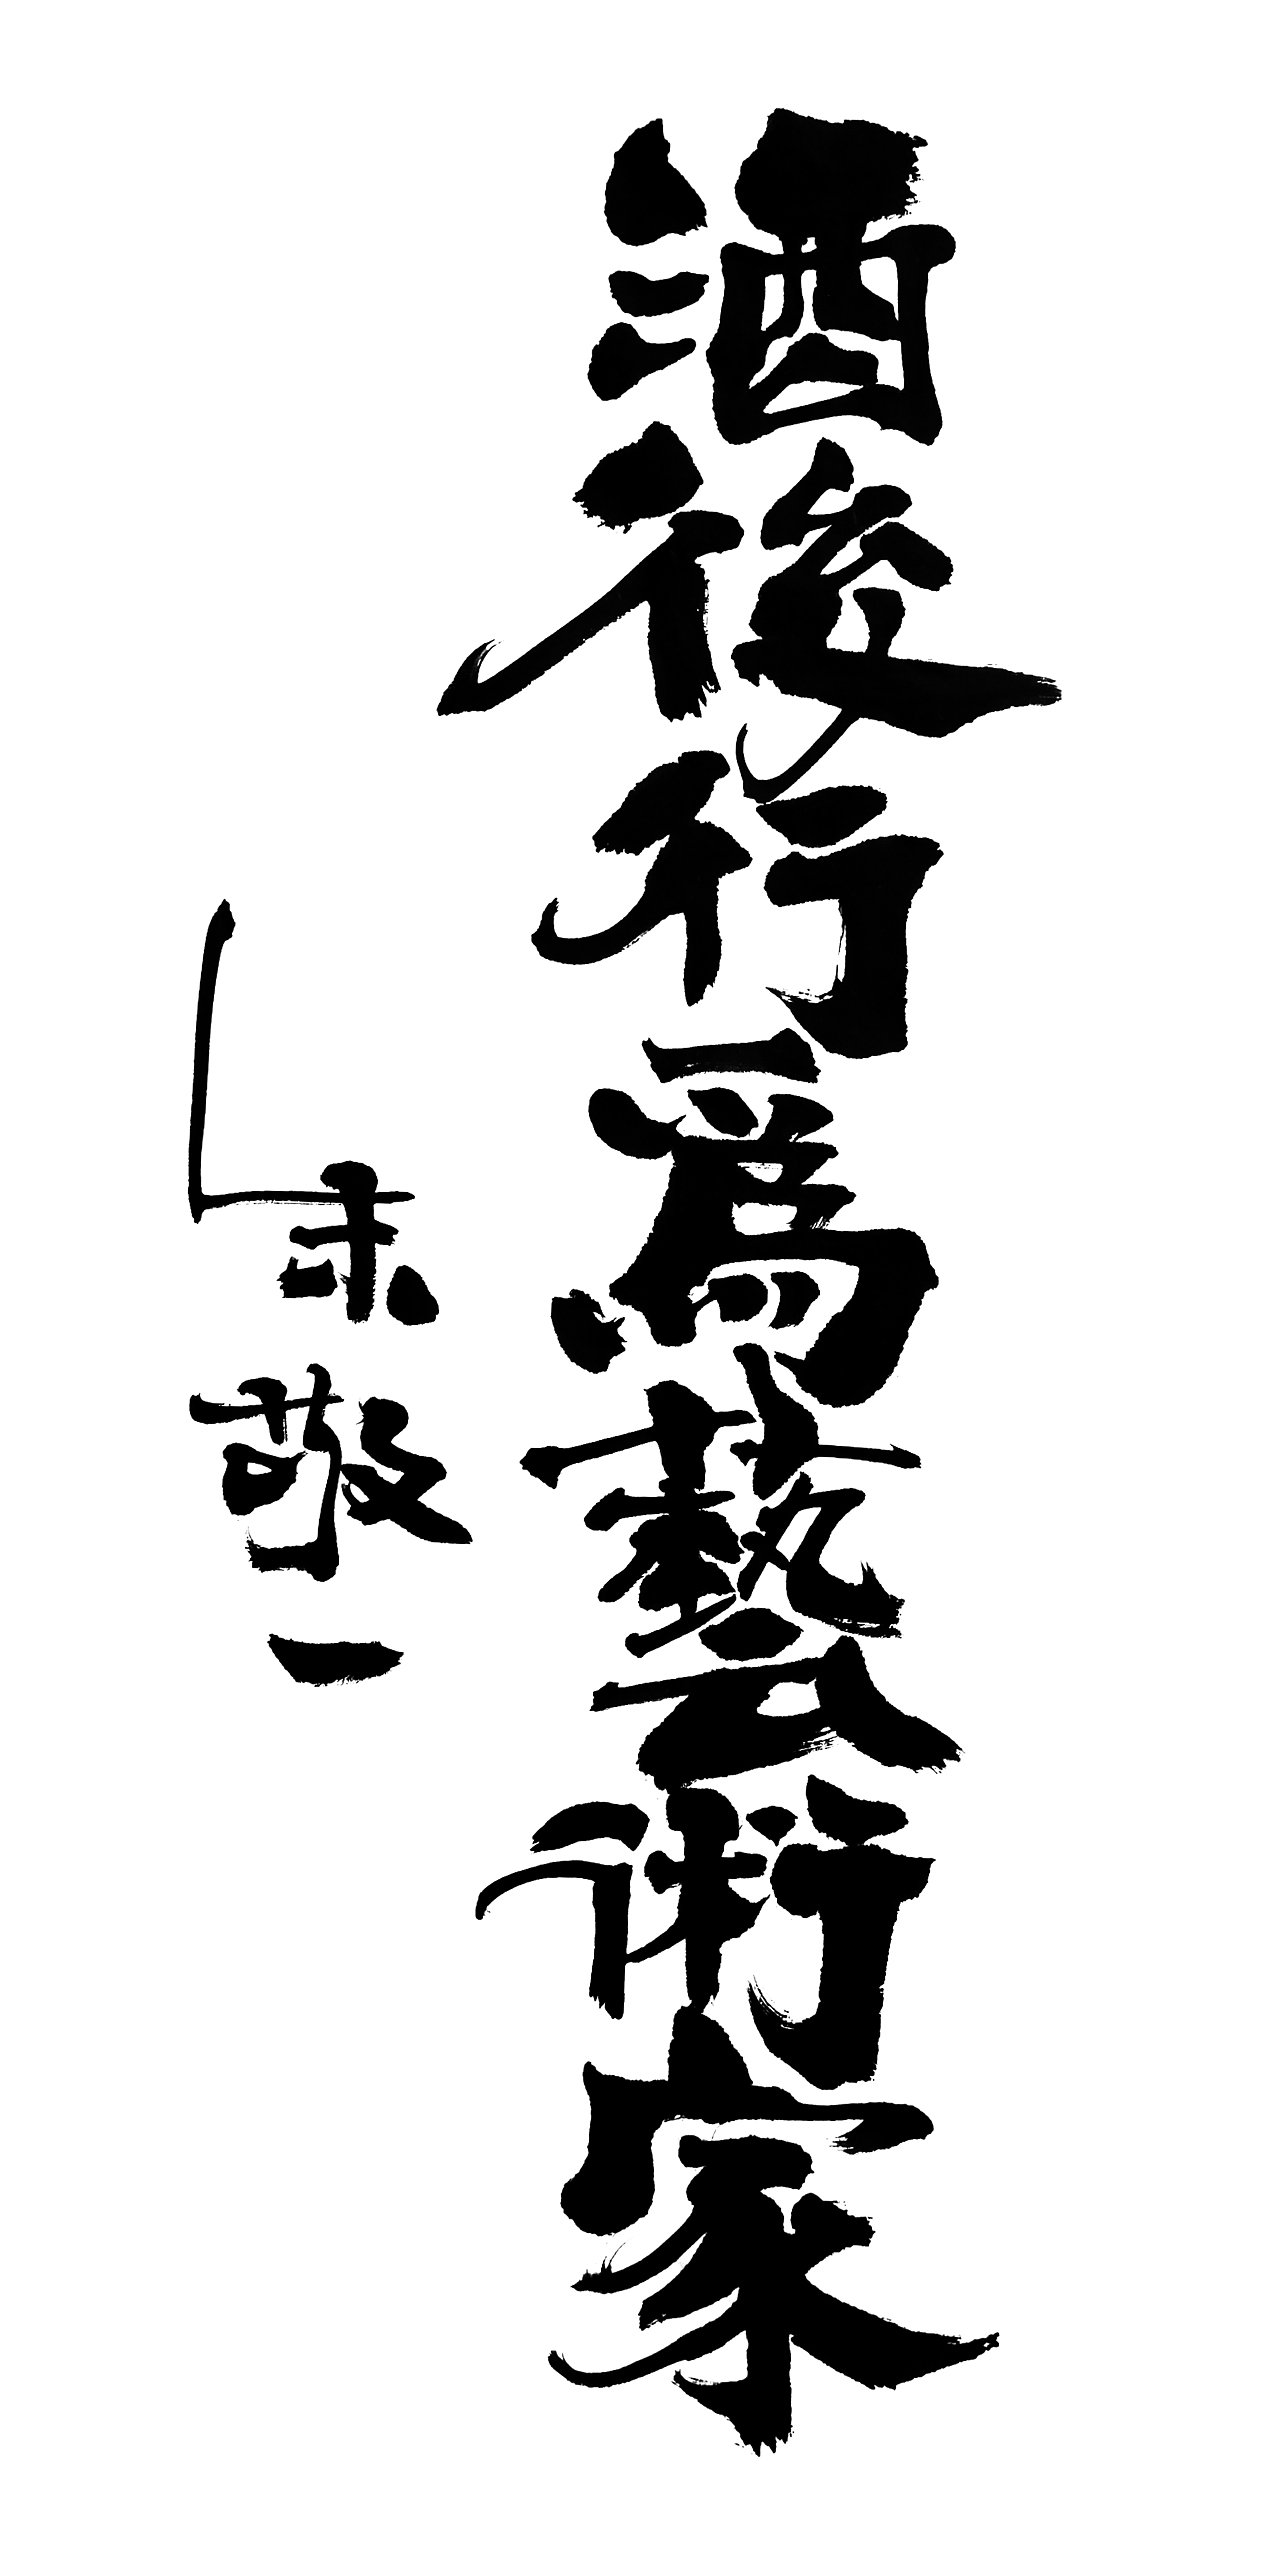 酒後行爲藝術家
朱敬一